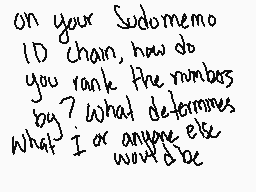 on your Sudomemo
ID chain, how do
you rank the numbers
by? What determines
what I or anyone else
would be